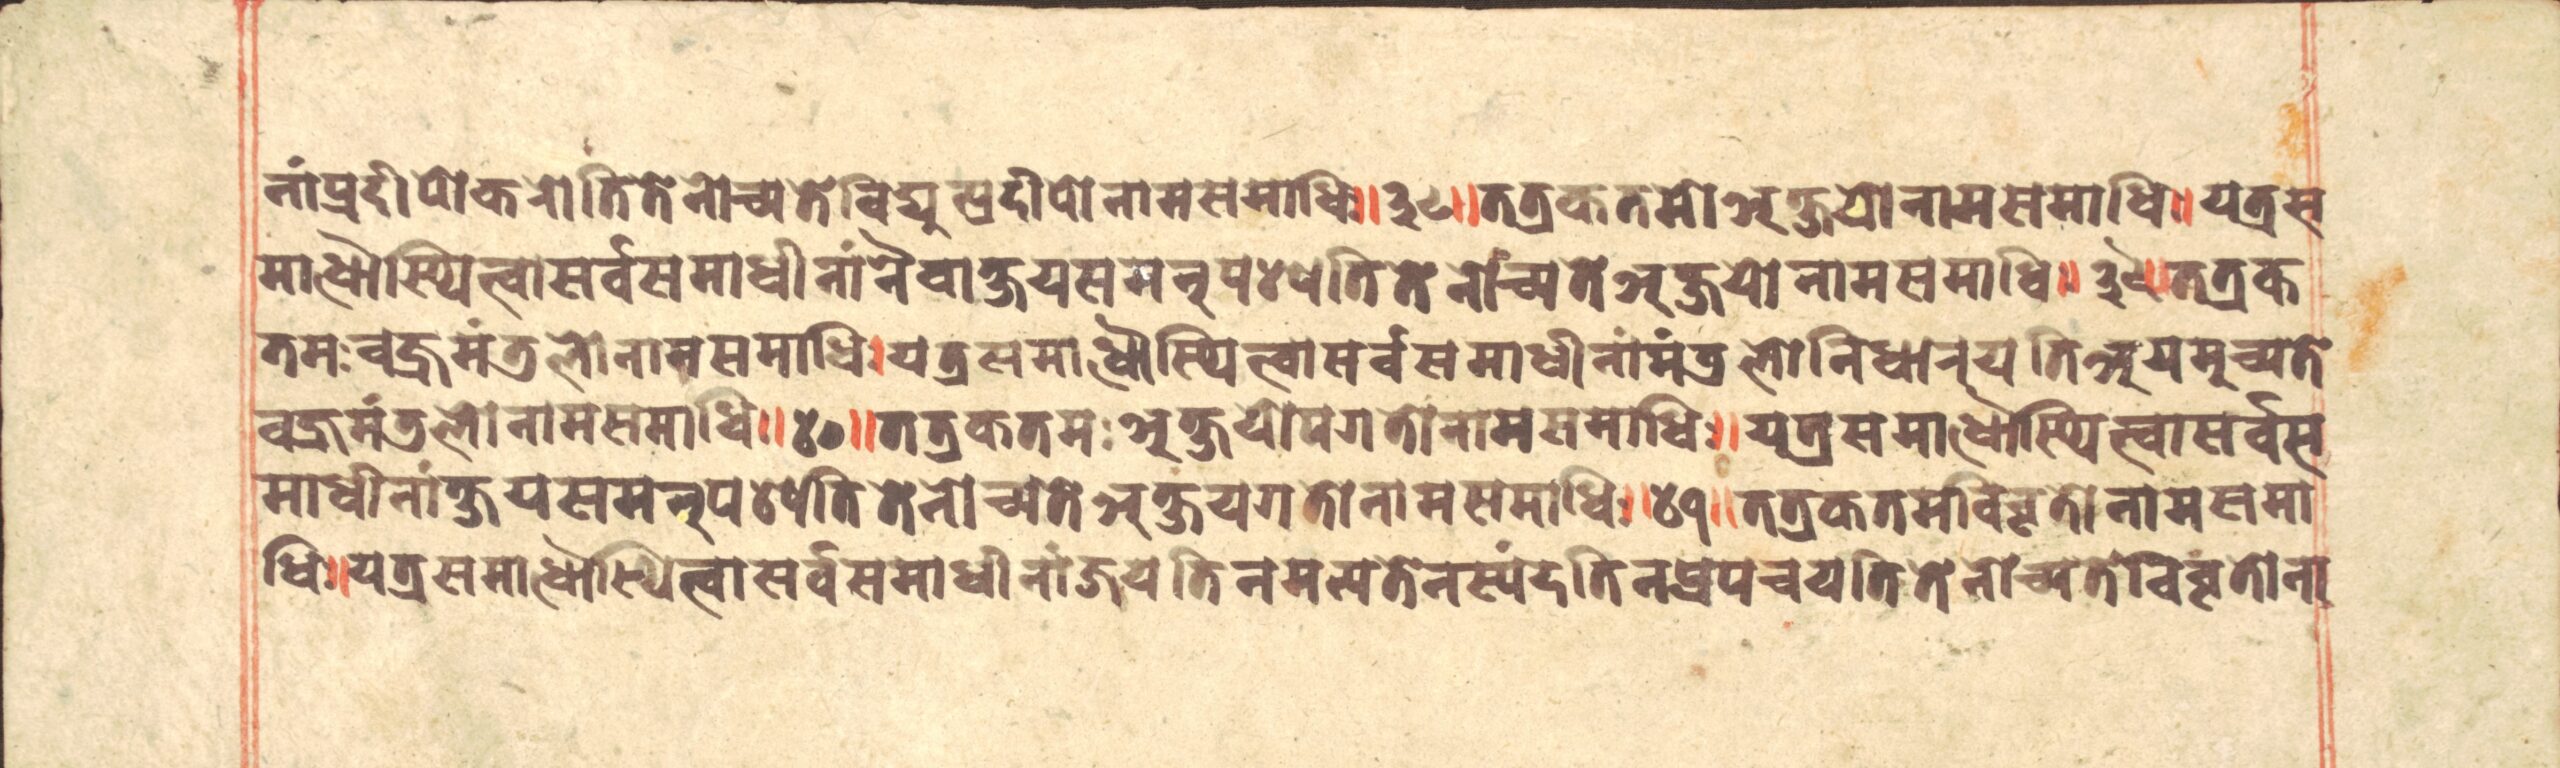 नांप्रदीपोकरोतितेनोच्यतेविद्युत्प्रदीपोनामसमाधिः॥३८॥तत्रकतमोअक्षयोनामसमाधिः॥यत्रस
माधौस्थित्वासर्वसमाधीनांनैवाक्षयसमनुपश्यतितेनोच्यतेअक्षयोनामसमाधिः॥३९॥तत्रक
तमःवज्रमंडलोनामसमाधिः।यत्रसमाधौस्थित्वासर्वसमाधीनांमंडलोनिधारयतिअयमुच्यते
वज्रमंडलोनामसमाधिः॥४०॥तत्रकतमःअक्षयोपगतोनामसमाधिः॥यत्रसमाधौस्थित्वासर्वस
माधीनांक्षयसमनुपश्यतितेनोच्यतेअक्षयगतोनामसमाधिः॥४१॥तत्रकतमविवृतोनामसमा
धिः॥यत्रसमाधौस्थित्वासर्वसमाधीनांजयतिनमन्यतेनस्पंदतिनप्रपचयतितेनोच्यतेविवृंतोना